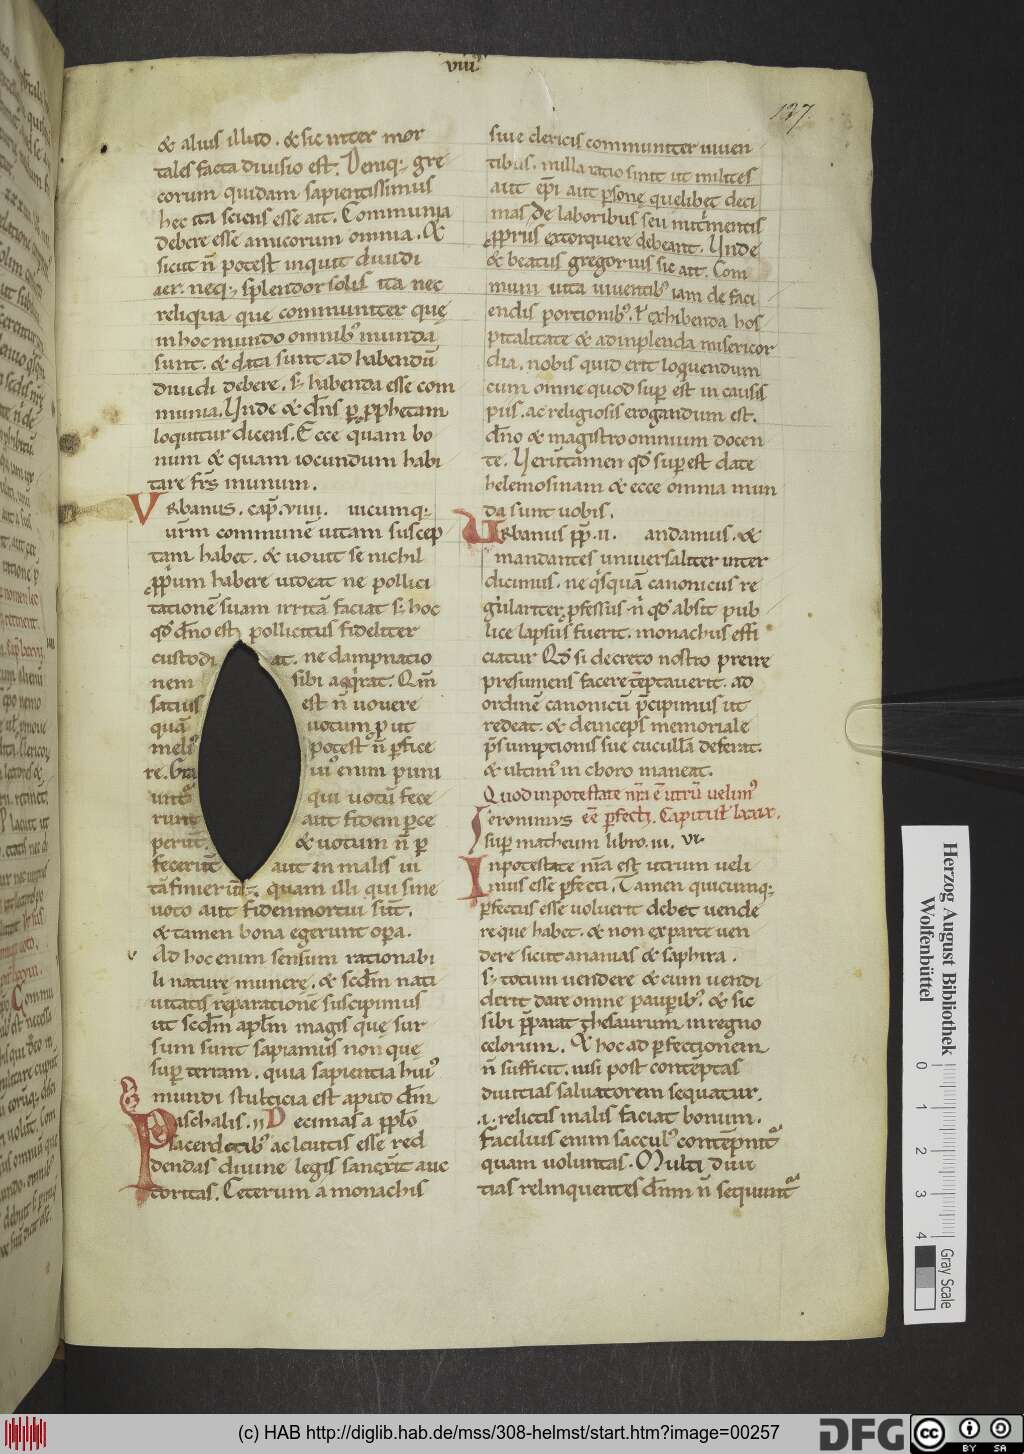 viiii
127
& alius illud. & sic inter mor
tales facta diuisio est. Deniq; gre
corum quidam sapientissimus
hec ita sciens esse ait. Communia
debere esse amicorum omnia. Et
sicut n̄ potest inquit diuidi
aer. neq; splendor solis ita nec
reliqua que communiter quę
in hoc mundo omnib; munda
sunt. & data sunt ad habendū
diuidi debere. s; habenda esse com
munia. Unde & dn̄s ꝑ ꝓphetam
loquitur dicens. Ecce quam bo
num & quam iocundum habi
tare frs̄ in unum.
Vrbanus. cap̄. viiii. uicumq;
urm̄ communē uitam suscep
tam habet. & uouit se nichil
ꝓprium habere uideat ne pollici
tationē suam irritā faciat s; hoc
qđ dn̄o est pollicitus fideliter
custodi at. ne dampnatio
nem sibi aqͥrat. Qm̄
satius est n̄ uouere
quā uotum ꝓ ut
meli; potest n̄ ꝑfice
re. Gra ui; enim puni
untᷣ qui uotū fece
runt aut fidem ꝑce
perunt. & uotum n̄ ꝑ
fecerūt aut in malis ui
tā finierūt; quam illi qui sine
uoto aut fidem mortui sūt.
& tamen bona egerunt oꝑa.
Ad hoc enim sensum rationabi
li nature munere. & scd̄m nati
uitatis reparationē suscipimus
ut scd̄m aplm̄ magis que sur
sum sunt sapiamus non que
suꝑ terram. quia sapientia hui;
mundi stulticia est aput dm̄
Paschalis. ii Decimas a pplo
sacerdotib; ac leuitis esse red
dendas diuine legis sanxit auc
toritas. Ceterum a monachis
siue clericis communiter uiuen
tibus. nulla ratio sinit ut milites
aut ep̄i aut ꝑsonę quelibet deci
mas de laboribus seu nutͥmentis
ꝓpriis extorquere debeant. Unde
& beatus gregorius sic ait. Com
mum uita uiuentib; iam de faci
endis portionib;. ł exhibenda hos
pitalitate & adinplenda misericor
dia. nobis quid erit loquendum
cum omne quod suꝑ est in causis
piis. ac religiosis erogandum est.
dn̄o & magistro omnium docen
te. Ueruntamen qđ suꝑ est date
helemosinam & ecce omnia mun
da sunt uobis.
Urbanus pp̄. ii. andamus. &
mandantes uniuersaliter inter
dicimus. ne qͥsquā canonicus re
gulariter ꝓfessus. n̄ qđ absit pub
lice lapsus fuerit. monachus effi
ciatur Qđ si decreto nostro preire
presumens facere tēptauerit. ad
ordinē canonicū p̄cipimus ut
redeat. & deinceps memoriale
p̄sumptionis sue cucullā deferat.
& ultim; in choro maneat.
Quod in potestate nr̄a ē utrū uelim;
eē ꝑfecti. Capitul̄ lxxix.
Ieronimus
suꝑ matheum libro. iii. vi.
In potestate nr̄a est utrum ueli
mus esse ꝑfecti. Tamen quicumq;
ꝑfectus esse uoluerit debet uende
re que habet. & non ex parte uen
dere sicut ananias & saphira.
s; totum uendere & cum uendi
derit dare omne pauꝑib; & sic
sibi p̄parat thesaurum in regno
celorum. Et hoc ad ꝑfectionem
n̄ sufficit. nisi post contēptas
diuitias saluatorem sequatur.
.i. relictis malis faciat bonum.
Facilius enim saccul; contēpnitᷣ
quam uoluntas. Multi diui
tias relinquentes dn̄m n̄ sequuntᷣ
Herzog August Bibliothek
Wolfenbüttel
0 1 2 3 4
Gray Scale
(c) HAB http://diglib.hab.de/mss/308-helmst/start.htm?image=00257
DFG
cc
BY SA